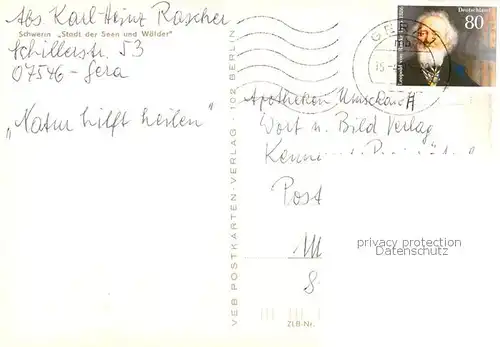 Abs Karl-Heinz Rascher
Schwerin „Stadt der Seen und Wälder"
Schillerstr. 53
07546-Gera
„Natur hilft heilen"
VEB POSTKARTEN-VERLAG · 102 BERLIN
Deutschland
80
GERA
Apotheken Umschau
Wort u. Bild Verlag
Post
privacy protection
Datenschutz
ZLB-Nr.